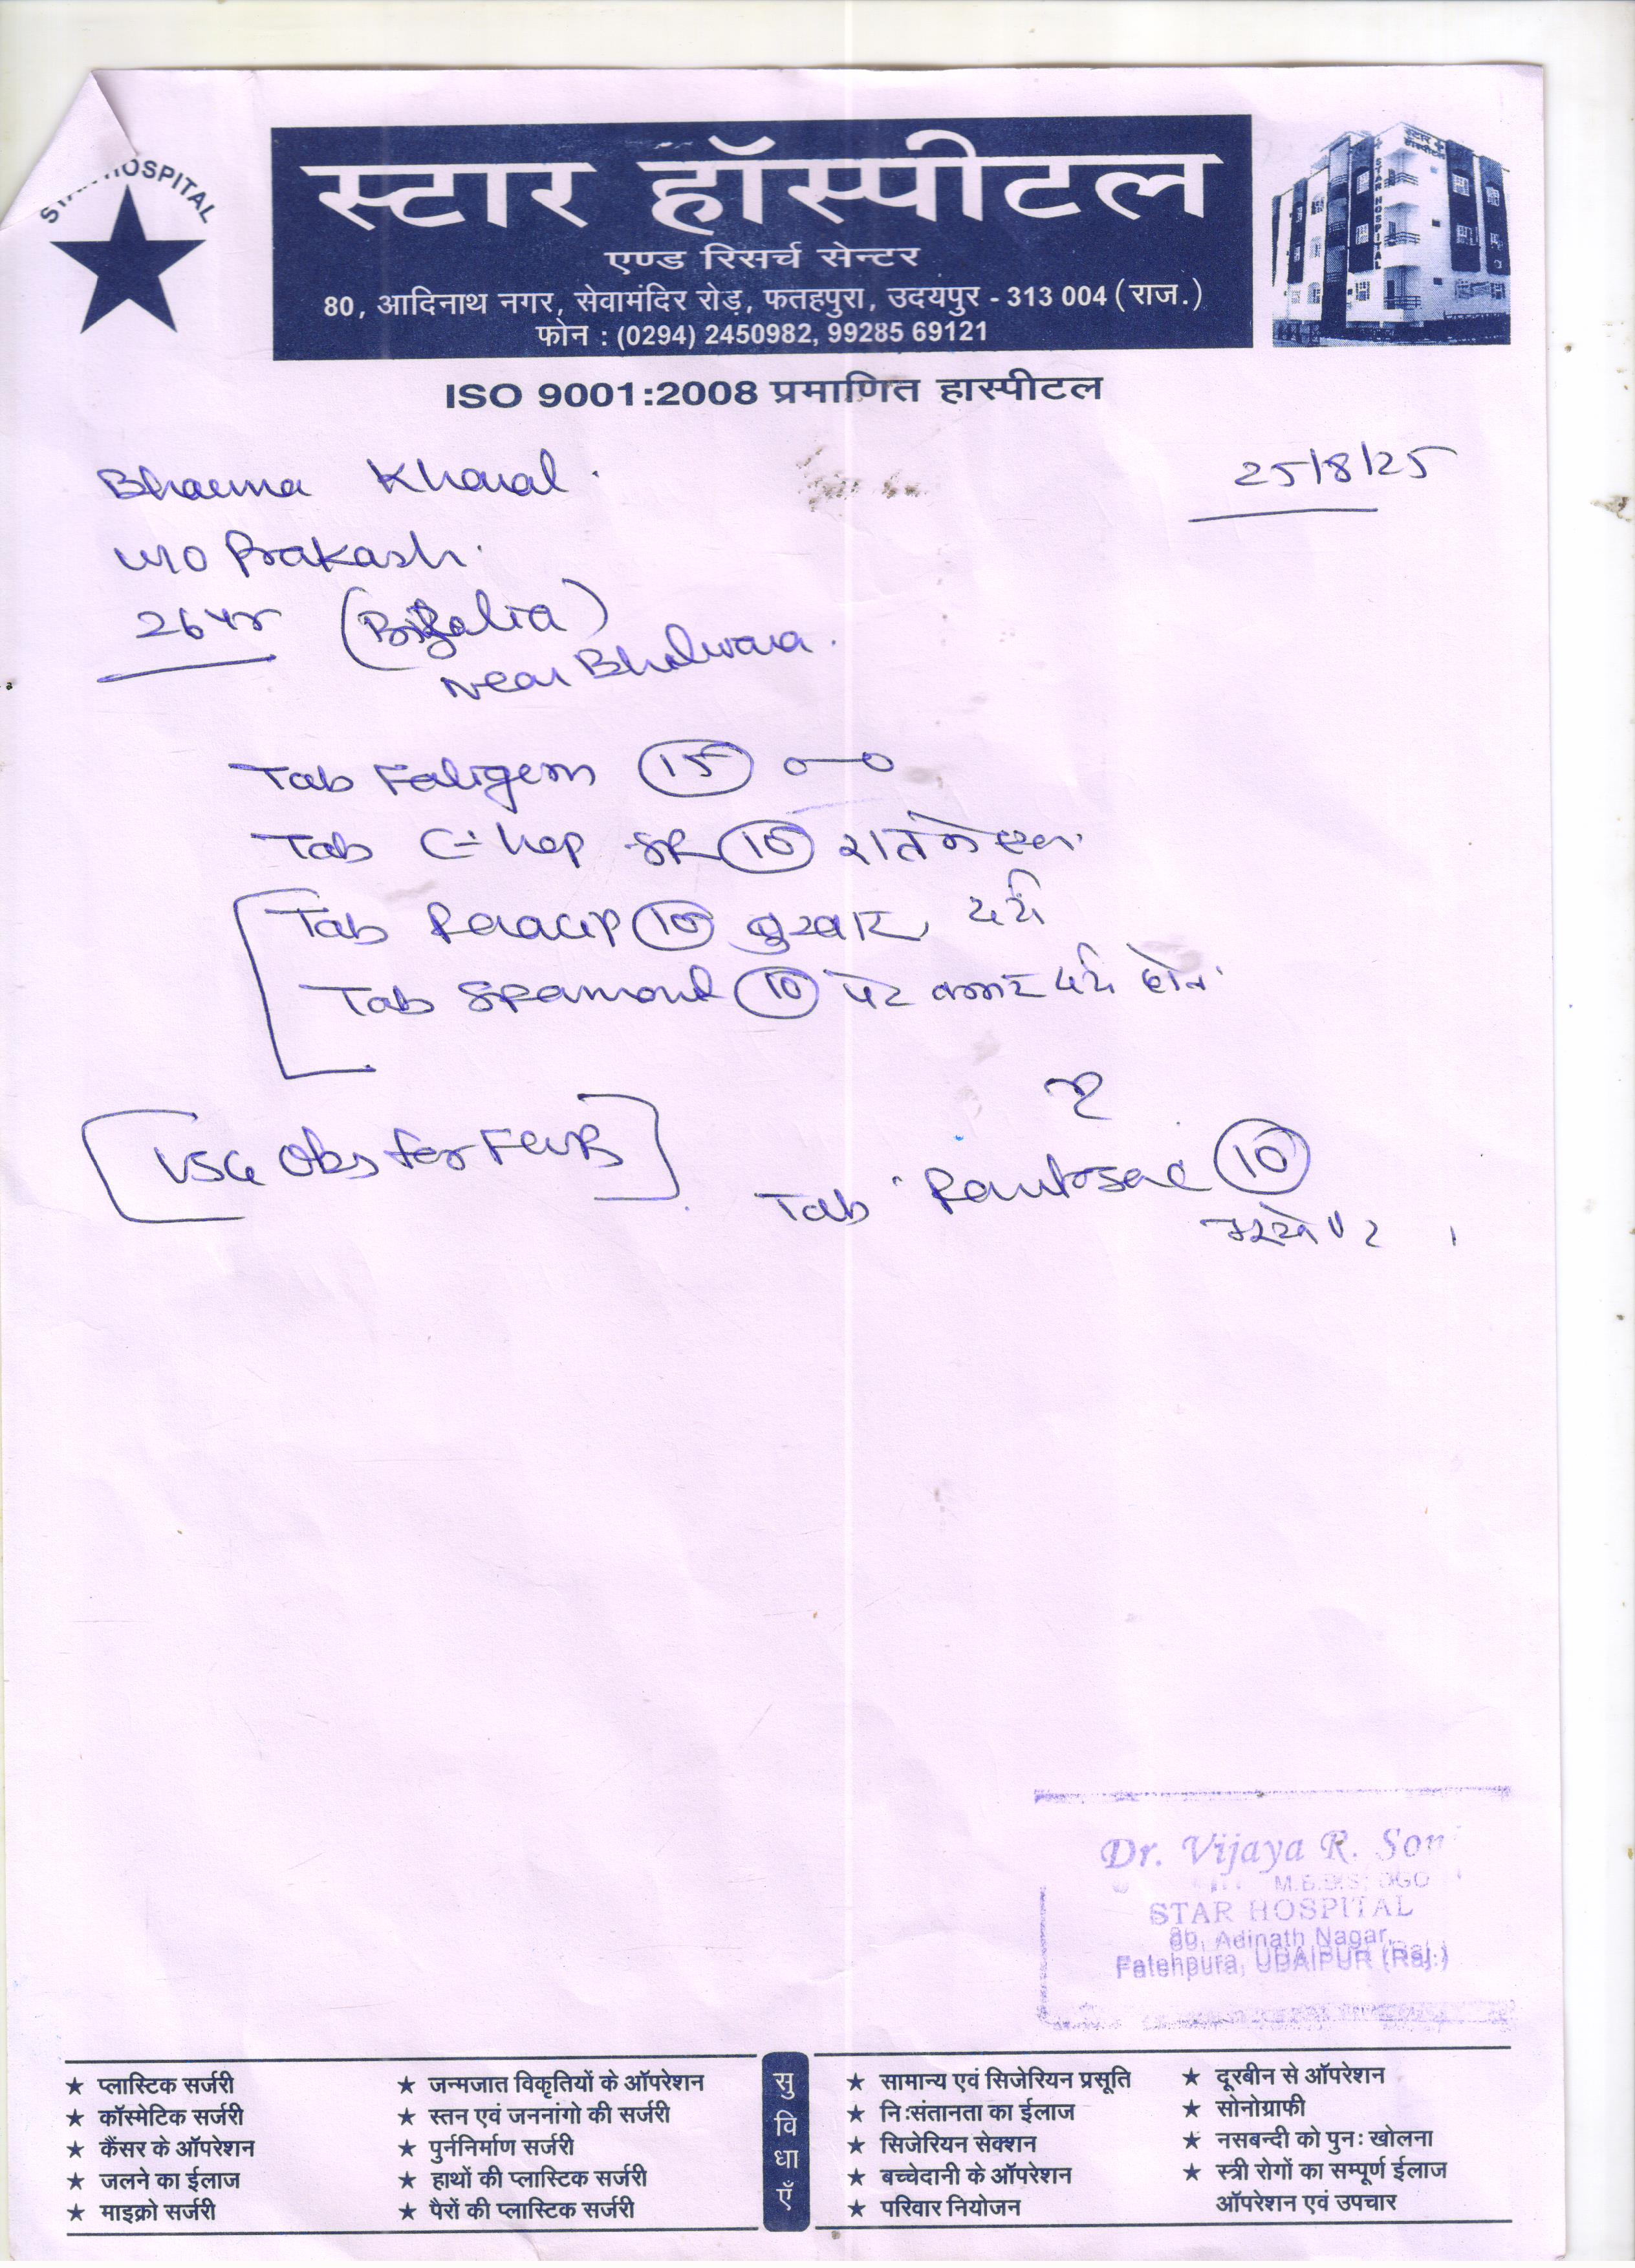 HOSPITAL
स्टार हॉस्पीटल
एण्ड रिसर्च सेन्टर
80, आदिनाथ नगर, सेवामंदिर रोड़, फतहपुरा, उदयपुर - 313 004 (राज.)
फोन : (0294) 2450982, 99285 69121
STAR HOSPITAL
ISO 9001:2008 प्रमाणित हास्पीटल
25/8/25
w/o Prakash.
26 yr
Near Bhilwara.
Tab 15
Tab 10 रात को एक
Tab 10 बुखार, दर्द
Tab 10 पेट कमर दर्द होने
पर
USG Obs for FWB
Tab 10
Dr. Vijaya R. Son
M.B.B.S; DGO
STAR HOSPITAL
80, Adinath Nagar,
Fatehpura, UDAIPUR (Raj.)
सुविधाएँ
★ प्लास्टिक सर्जरी
★ कॉस्मेटिक सर्जरी
★ कैंसर के ऑपरेशन
★ जलने का ईलाज
★ माइक्रो सर्जरी
★ जन्मजात विकृतियों के ऑपरेशन
★ स्तन एवं जननांगो की सर्जरी
★ पुर्ननिर्माण सर्जरी
★ हाथों की प्लास्टिक सर्जरी
★ पैरों की प्लास्टिक सर्जरी
★ सामान्य एवं सिजेरियन प्रसूति
★ नि:संतानता का ईलाज
★ सिजेरियन सेक्शन
★ बच्चेदानी के ऑपरेशन
★ परिवार नियोजन
★ दूरबीन से ऑपरेशन
★ सोनोग्राफी
★ नसबन्दी को पुन: खोलना
★ स्त्री रोगों का सम्पूर्ण ईलाज
ऑपरेशन एवं उपचार